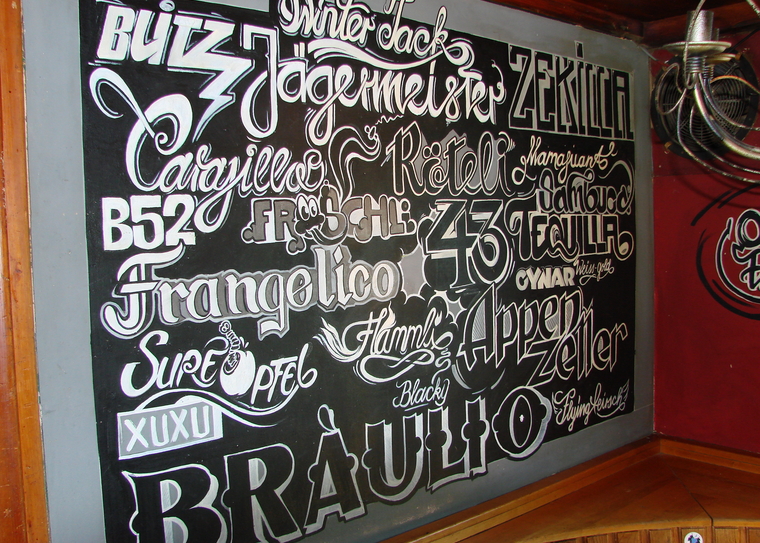 Winter Jack
BLITZ
Jägermeister
ZEKILLA
Carajillo
Röteli
Mamajuana
Sambuca
B52
FRÖSCHLI
43
TEQUILLA
CYNAR
Weiss-gold
Frangelico
Appenzeller
Hämmli
SURE ÖPFEL
Blacky
Flying hirsch
XUXU
BRÀULIO